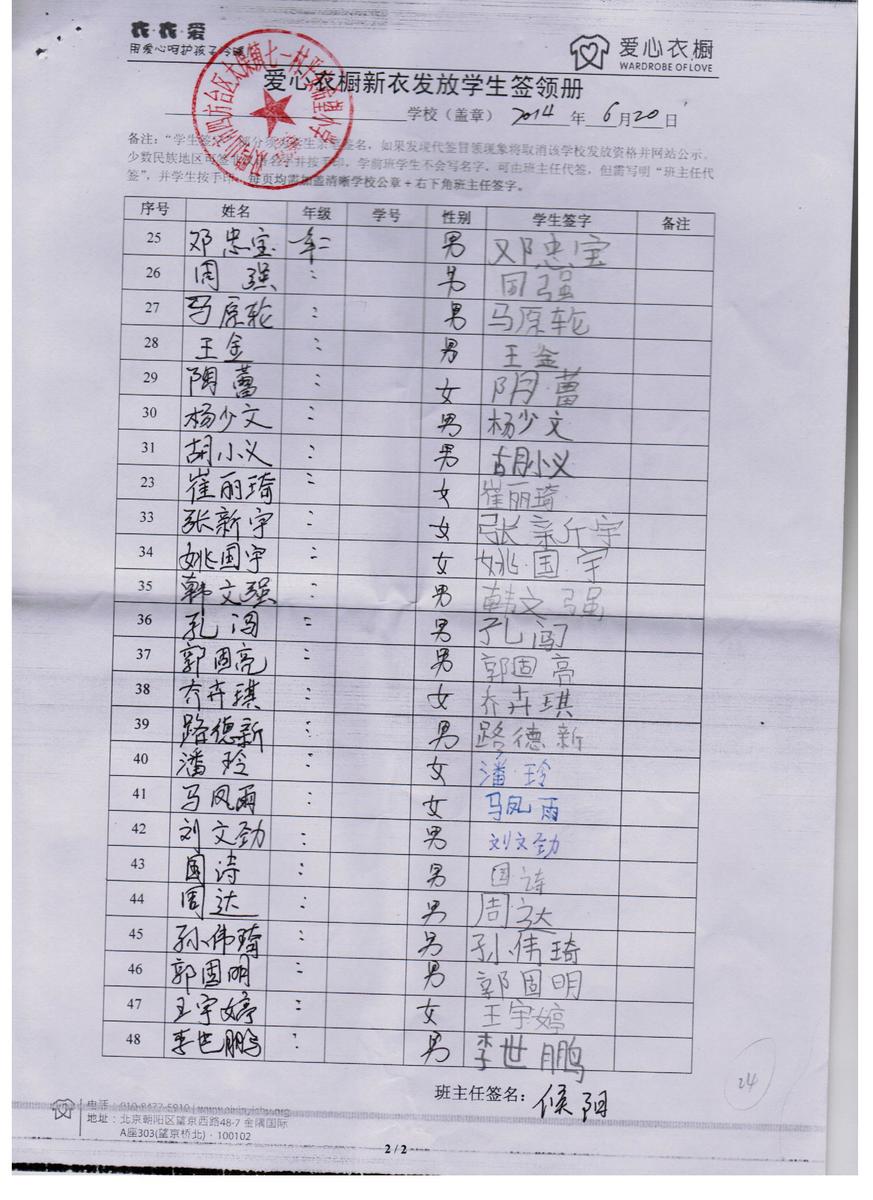 衣·衣·爱
用爱心呵护孩子冷暖
爱心衣橱
WARDROBE OF LOVE
爱心衣橱新衣发放学生签领册
学校（盖章） 2014 年 6 月 20 日
备注：“学生签 部分须 生亲 签名，如果发现代签冒领现象将取消该学校发放资格并网站公示。
少数民族地区可签 名字并按手印，学前班学生不会写名字，可由班主任代签，但需写明“班主任代
签”，并学生按手印。每页均需加盖清晰学校公章+右下角班主任签字。
序号 姓名 年级 学号 性别 学生签字 备注
25 邓忠宝 一年二 男 邓忠宝
26 周强 〃 男 周强
27 马原轮 〃 男 马原轮
28 王金 〃 男 王金
29 陶蕾 〃 女 陶蕾
30 杨少文 〃 男 杨少文
31 胡小义 〃 男 胡小义
23 崔丽琦 〃 女 崔丽琦
33 张新宇 〃 女 张新宇
34 姚国宇 〃 女 姚·国·宇
35 韩文强 〃 男 韩文强
36 孔闯 〃 男 孔闯
37 郭固亮 〃 男 郭固亮
38 乔卉琪 〃 女 乔卉琪
39 路德新 〃 男 路德新
40 潘玲 〃 女 潘·玲
41 马凤雨 〃 女 马凤雨
42 刘文劲 〃 男 刘文劲
43 国诗 〃 男 国诗
44 周达 〃 男 周达
45 孙伟琦 〃 男 孙伟琦
46 郭固明 〃 男 郭固明
47 王宇婷 〃 女 王宇婷
48 李世鹏 〃 男 李世鹏
班主任签名： 候阳
24
电话：010-8477-5910 | www.aixinyichu.org
地址：北京朝阳区望京西路48-7 金隅国际
A座303(望京桥北)·100102
2 / 2